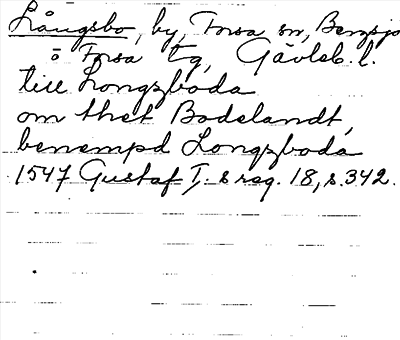 Långsbo, by, Forsa sn, Bergsjö
o Forsa tg, Gävleb. l.
till Longzboda
om thet Bodelandt,
benempd Longzboda
1547 Gustaf I:s reg. 18, s. 342.